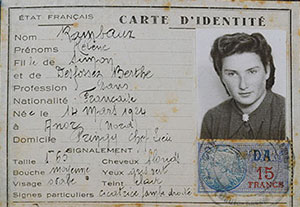 ÉTAT FRANÇAIS
CARTE D'IDENTITÉ
Nom Rambaux
Prénoms Hélène
Fille de Simon
et de Desfossez Berthe
Profession Sans
Nationalité Française
Née le 14 mars 1924
à Anor (Nord)
Domicile chef lieu
SIGNALEMENT
Taille 1m65 Cheveux
Bouche moyenne Yeux
Visage ovale Teint clair
Signes particuliers cicatrice jambe droite
DA
15
FRANCS